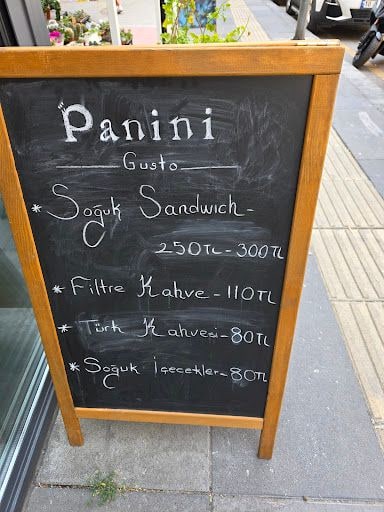 Panini
Gusto
* Soğuk Sandwıch -
250TL - 300TL
* Filtre Kahve - 110TL
* Türk Kahvesi - 80TL
* Soğuk İçecekler - 80TL